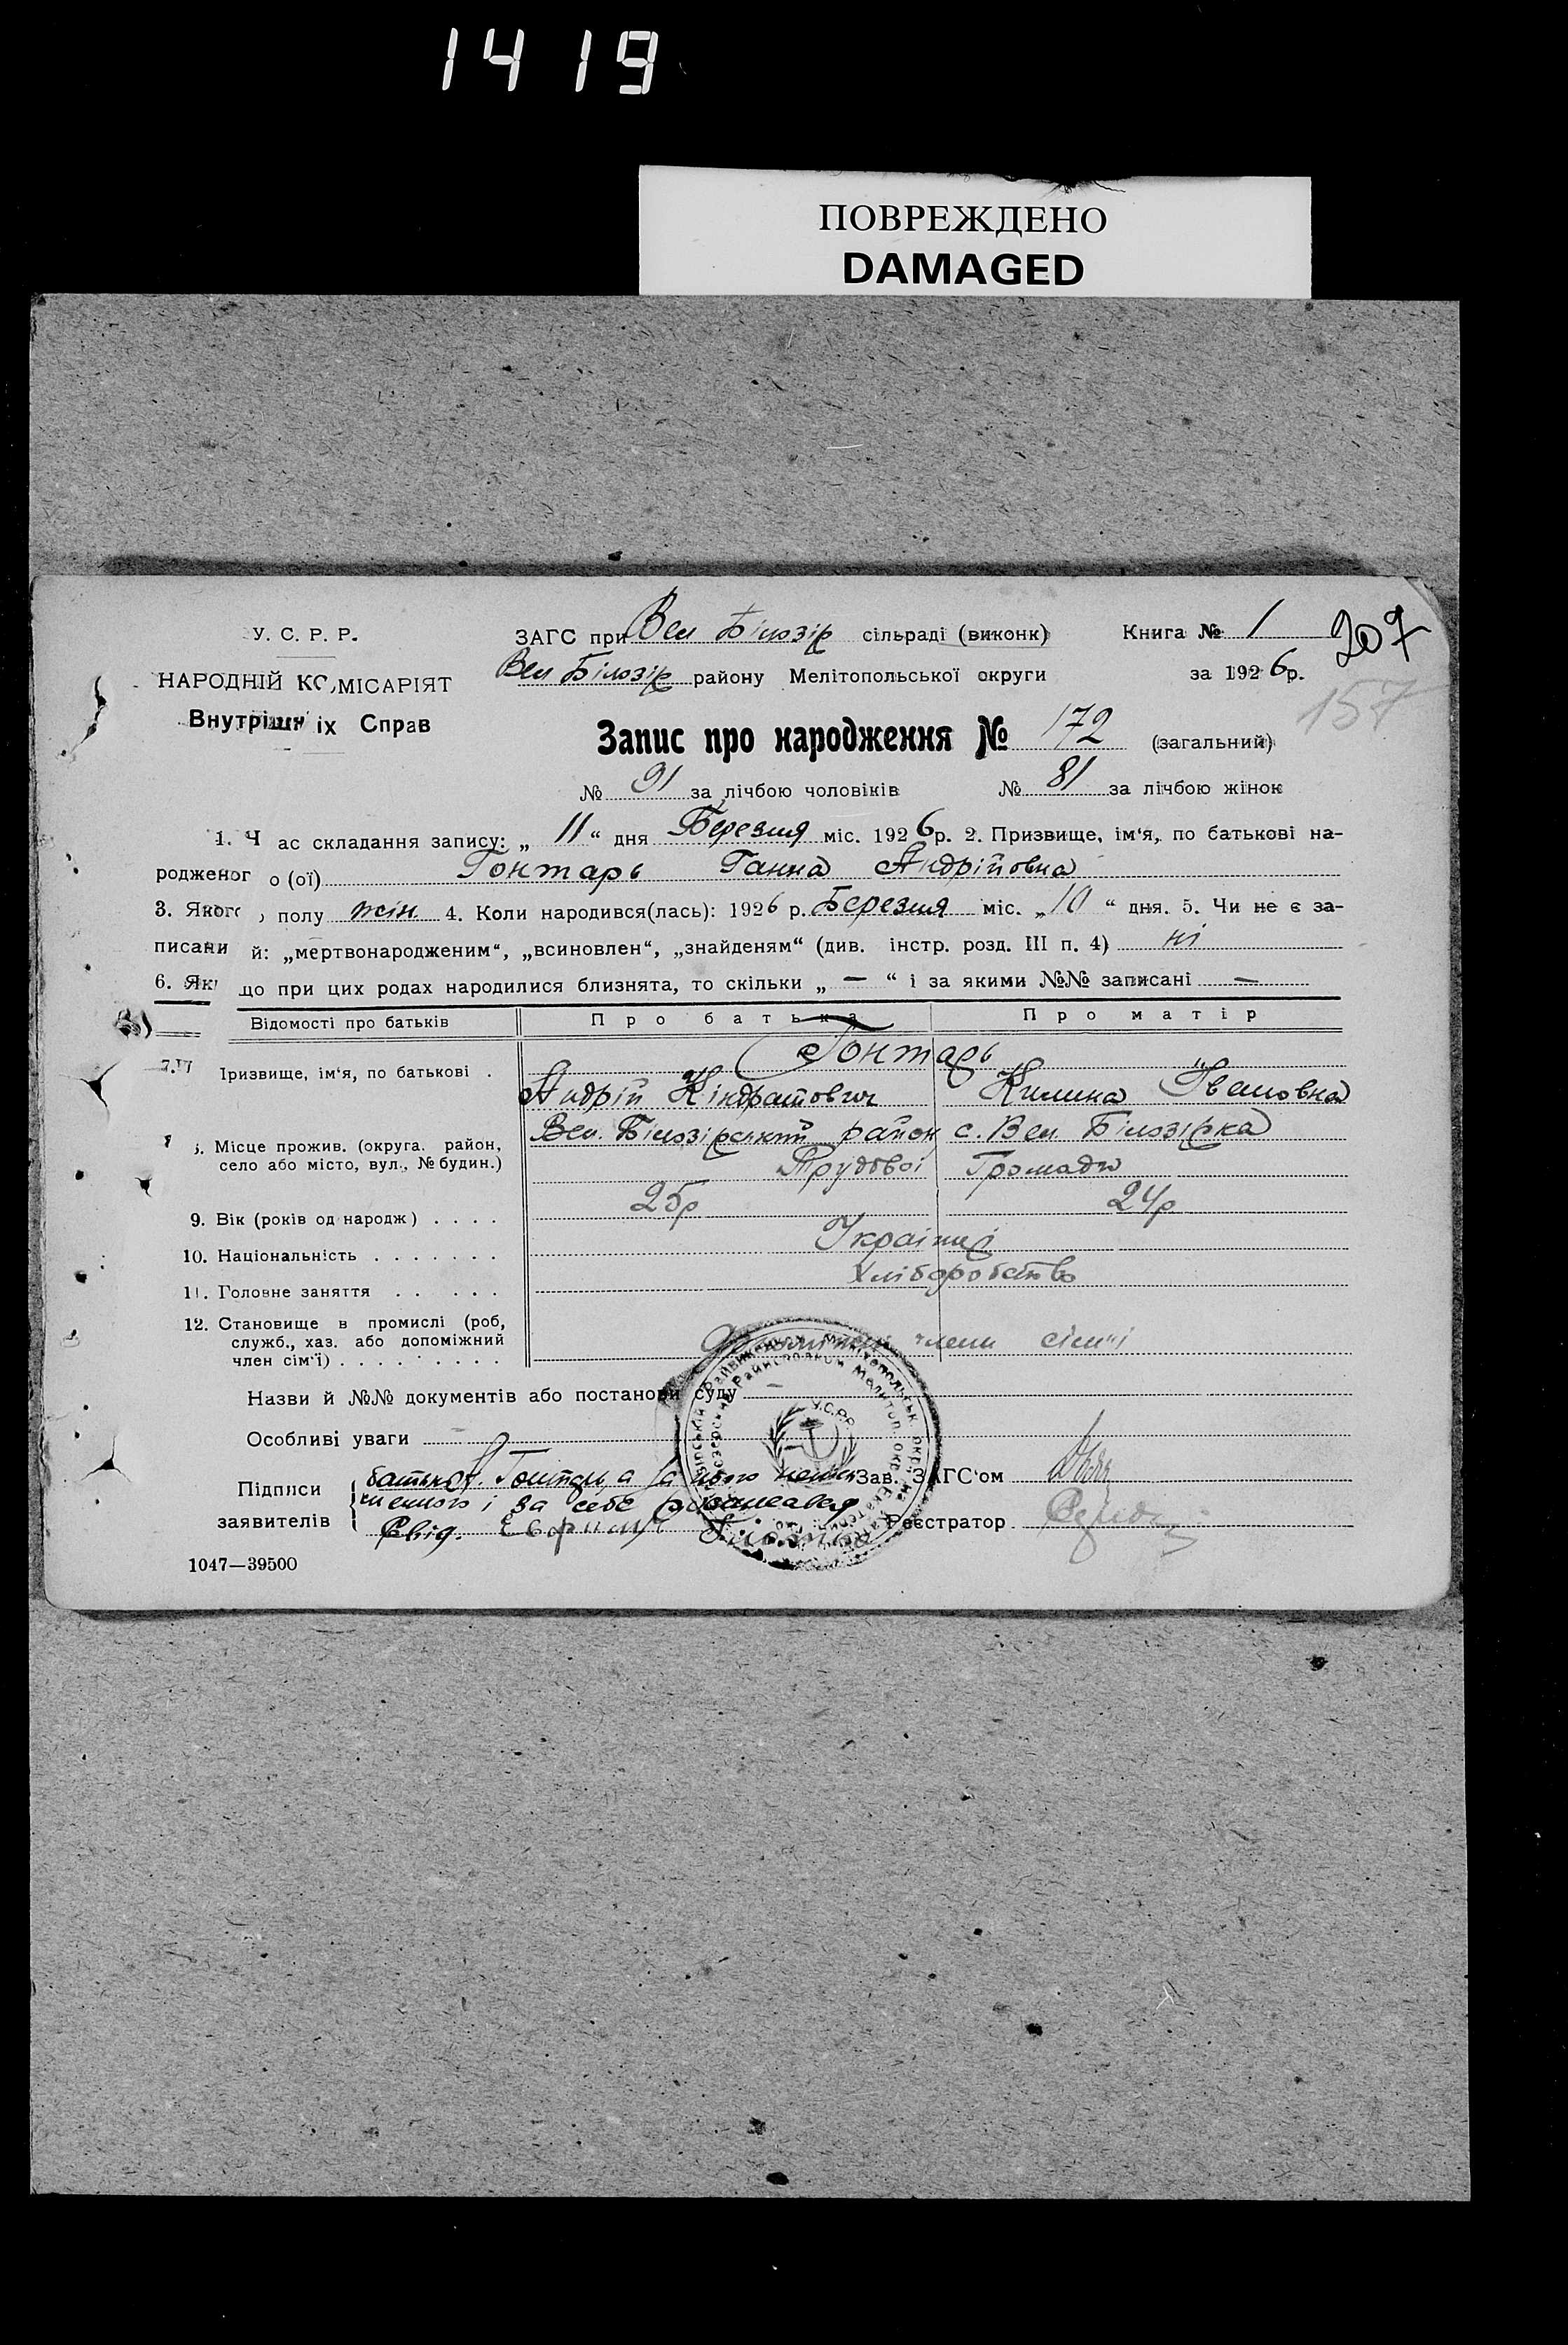 1419
ПОВРЕЖДЕНО
DAMAGED
У. С. Р. Р.
НАРОДНІЙ КОМІСАРІЯТ
Внутрішніх Справ
ЗАГС при Вел Білозір сільраді (виконк)
Вел Білозір району Мелітопольської округи
Книга № 1
207
за 1926 р.
157
Запис про народження № 172 (загальний)
№ 91 за лічбою чоловіків № 81 за лічбою жінок
1. Час складання запису: „ 11 “ дня Березня міс. 1926 р. 2. Призвище, ім'я, по батькові на-
родженого (ої) Гонтарь Ганна Андрійовна
3. Якого полу жін. 4. Коли народився(лась): 1926 р. Березня міс. „ 10 “ дня. 5. Чи не є за-
писаний: „мертвонародженим“, „всиновлен“, „знайденям“ (див. інстр. розд. III п. 4) ні
6. Якщо при цих родах народилися близнята, то скільки „ — “ і за якими №№ записані —
Відомості про батьків Про батька Про матір
Гонтарь
7. Призвище, ім'я, по батькові . Андрій Кіндратович Килина Івановна
8. Місце прожив. (округа. район, село або місто, вул., № будин.) Вел. Білозірський район с. Вел Білозірка
Трудової Громади
9. Вік (років од народж) . . . . 25р 24р
10. Національність . . . . . . . Українці
11. Головне заняття . . . . . Хліборобство
12. Становище в промислі (роб,
служб., хаз. або допоміжний
член сім'ї) . . . . . . . . . члени сімї
Назви й №№ документів або постанови суду —
Особливі уваги —
Підписи
заявителів
батько Гонтарь а за його
і за себе
Свід.
Зав. ЗАГС'ом
Реєстратор
У.С.Р.Р.
1047—39500